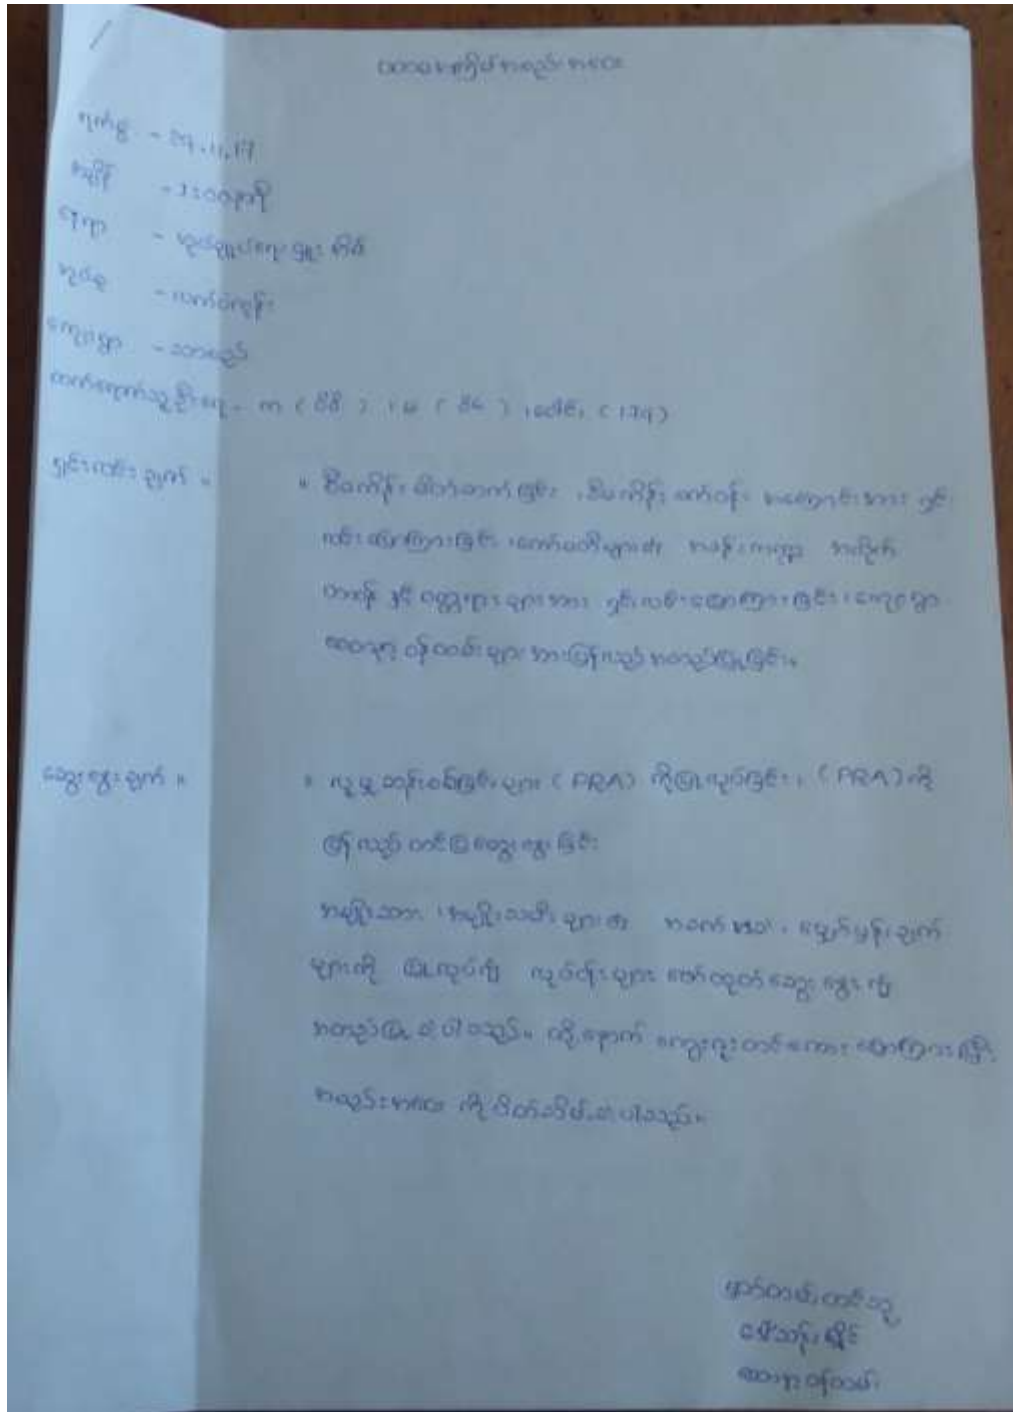 ပထမအကြိမ်အစည်းအဝေး
ရက်စွဲ - 29.11.17
အချိန် - 1:00နာရီ
နေရာ - အုပ်ချုပ်ရေးမှူးအိမ်
အုပ်စု - လက်ပံကုန်း
ကျေးရွာ - သာစည်
တက်ရောက်သူဦးရေ - ကျား ( ) ၊ မ ( ) ၊ပေါင်း (174)
ရှင်းလင်းချက် ။ ။ စီမံကိန်းမိတ်ဆက်ခြင်း ၊စီမံကိန်း အကြောင်းအား ရှင်း
လင်းပြောကြားခြင်း ၊ကော်မတီများ၏ အခန်းကဏ္ဍ
တာဝန် နှင့် ဝတ္တရားများအား ရှင်းလင်းပြောကြားခြင်း ၊ကျေးရွာ
စေတနာ့ဝန်ထမ်းများအားပြန်လည်အတည်ပြုခြင်း။
ဆွေးနွေးချက် ။ ။ လူမှုဆန်းစစ်ခြင်းများ (PRA) ကိုပြုလုပ်ခြင်း၊ (PRA) ကို
ပြန်လည် တင်ပြဆွေးနွေးခြင်း
အမျိုးသား ၊အမျိုးသမီးများ၏ အခက်အခဲ၊ မျှော်မှန်းချက်
များကို ပြုလုပ်၍ လုပ်ငန်းများ ဖော်ထုတ်ဆွေးနွေး၍
အတည်ပြုခဲ့ပါသည်။ ထို့နောက် ကျေးဇူးတင်စကား ပြောကြားပြီး
အစည်းအဝေး ကို ပိတ်သိမ်းခဲ့ပါသည်။
မှတ်တမ်းတင်သူ
စေတနာ့ဝန်ထမ်း